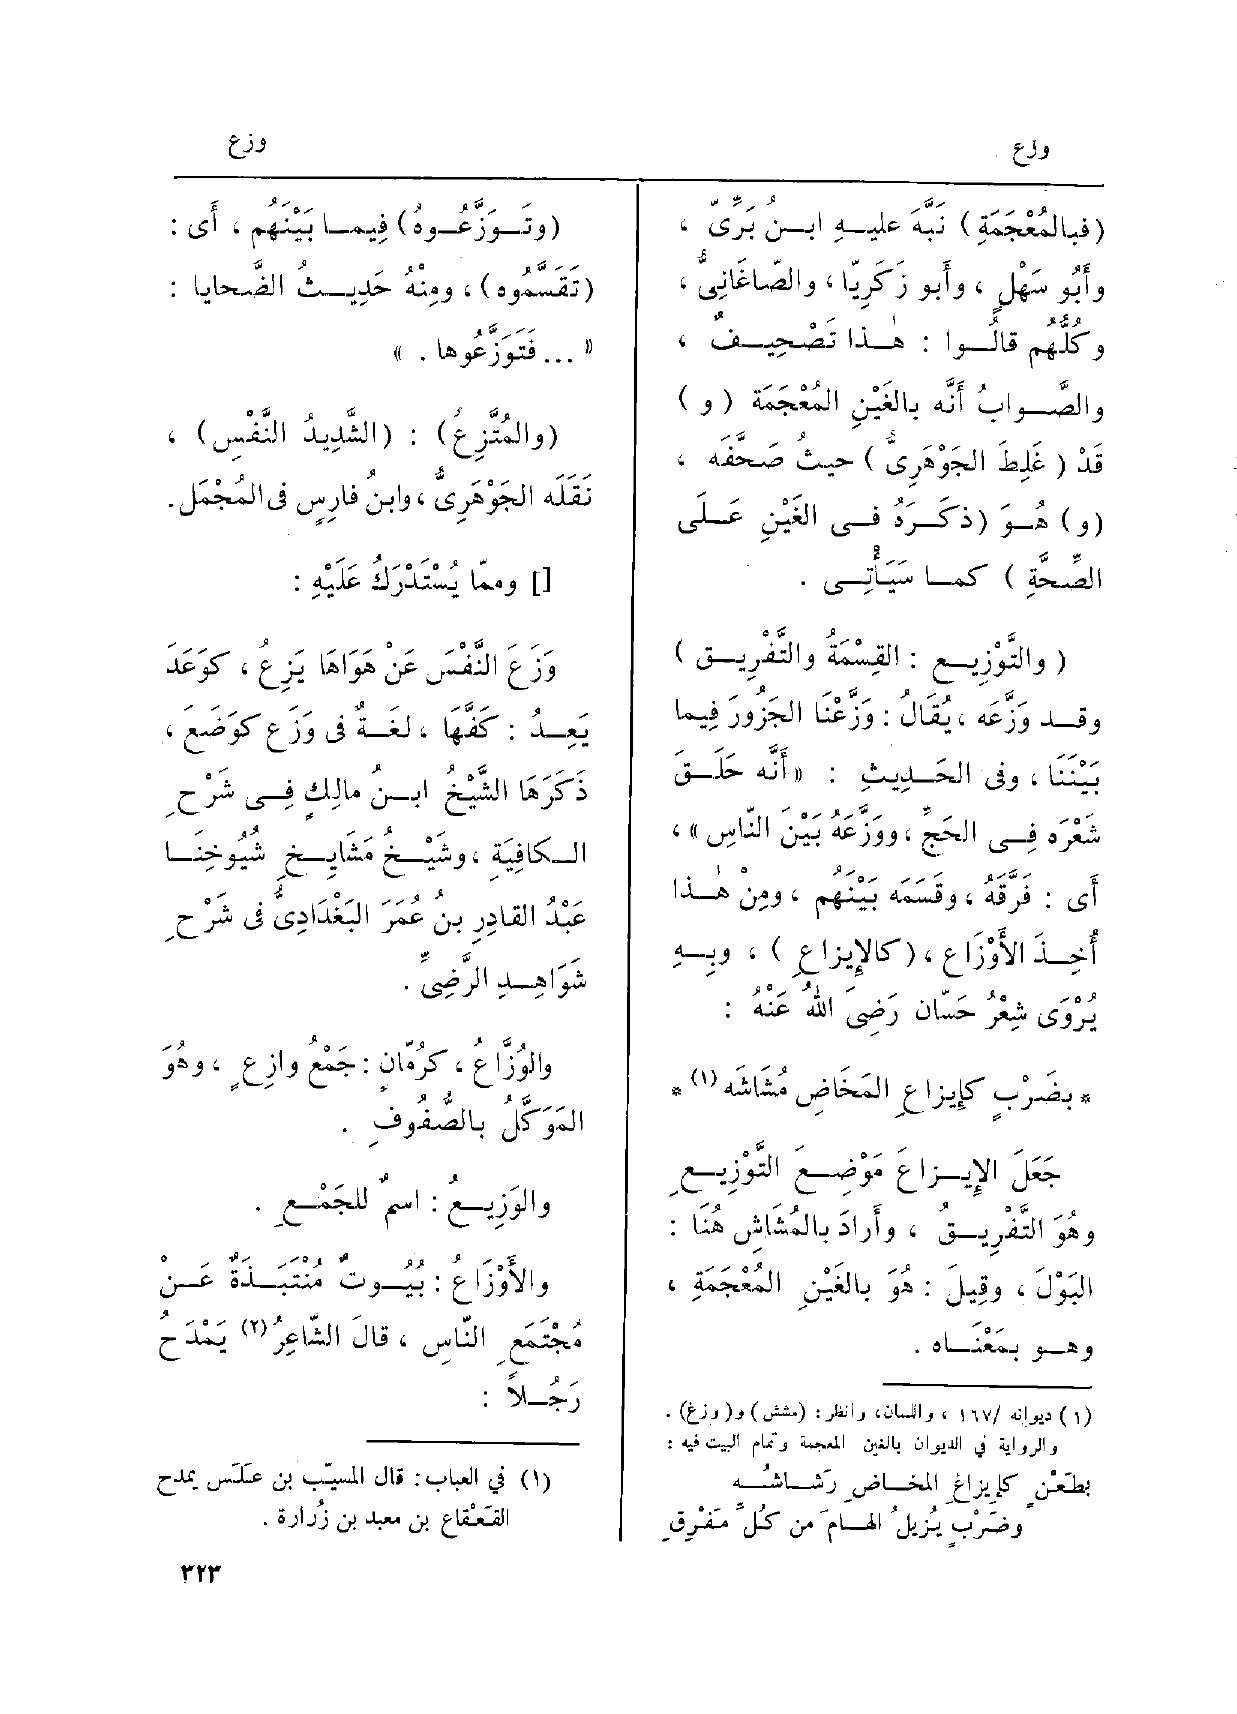 وزع
وزع
(فبالمُعْجَمَةِ) نَبَّهَ عليـهِ ابـنُ بَرِّىّ ،
وأَبُو سَهْلٍ ، وأَبو زَكَرِيّا ، والصّاغَانِىُّ ،
وكُلُّهُم قالُـوا : هٰـذا تَصْحِيـفٌ ،
والصَّـوابُ أَنَّه بالغَيْنِ المُعْجَمَة ( و )
قَدْ ( غَلِطَ الجَوْهَرِىُّ ) حيثُ صَحَّفَه ،
(و) هُـوَ (ذكَـرَهُ فـى الغَيْنِ عَـلَى
الصِّحَّةِ ) كمـا سَيَأْتِـى .
( والتَّوْزِيـع : القِسْمَةُ والتَّفْرِيـق )
وقـد وَزَّعَه ، يُقَالُ : وَزَّعْنَا الجَزُورَ فِيما
بَيْنَنَا ، وفى الحَـدِيثِ : « أَنَّه حَلَـقَ
شَعْرَه فِـى الحَجِّ ، وَوَزَّعَهُ بَيْنَ النّاسِ » ،
أَى : فَرَّقَهُ ، وقَسَمَه بَيْنَهُم ، ومِنْ هٰـذا
أُخِـذَ الأَوْزَاع ، (كالإِيزاعِ ) ، وبِـهِ
يُرْوَى شِعْرُ حَسّان رَضِىَ اللهُ عَنْهُ :
* بضَرْبٍ كإِيزاعِ المَخَاضِ مُشَاشَه (١) *
جَعَلَ الإِيـزاعَ مَوْضِـعَ التَّوْزِيـعِ
وهُوَ التَّفْرِيـقُ ، وأَرادَ بالمُشَاشِ هُنَا :
البَوْلَ ، وقِيلَ : هُوَ بالغَيْنِ المُعْجَمَةِ ،
وهـو بمَعْنَـاه .
(١) ديوانه /١٦٧ ، واللسان، وانظر: (مشش) و(وزغ) .
والرواية في الديوان بالغين المعجمة وتمام البيت فيه :
بطَعْنٍ كإيزاغِ المخـاضِ رَشـاشُـه
وضَرْبٍ يُزيلُ الهـامَ من كلِّ مَفْرِقِ
(وتَـوَزَّعُـوهُ) فِيمـا بَيْنَهُم ، أَى :
(تَقَسَّمُوه) ، ومِنْهُ حَدِيـثُ الضَّحايا :
« ... فَتَوَزَّعُوها . »
(والمُتَّزِعُ) : (الشَّدِيدُ النَّفْسِ) ،
نَقَلَه الجَوْهَرِىُّ ، وابنُ فارِسٍ فى المُجْمَل .
[] ومِمّا يُسْتَدْرَكُ عَلَيْهِ :
وَزَعَ النَّفْسَ عَنْ هَوَاهَا يَزِعُ ، كوَعَدَ
يَعِـدُ : كَفَّهَا ، لغَـةٌ فى وَزَع كوَضَع ،
ذَكَرَهَا الشَّيْخُ ابـنُ مالِكٍ فِـى شَرْحِ
الـكافِيَةِ ، وشَيْـخُ مَشَايِـخِ شُيُوخِنَـا
عَبْدُ القادِرِ بنُ عُمَرَ البَغْدَادِىُّ فى شَرْحِ
شَوَاهِـدِ الرَّضِىِّ .
والوُزَّاعُ ، كرُمّانٍ : جَمْعُ وازِعٍ ، وهُوَ
المُوَكَّلُ بالصُّفُوفِ .
والوَزِيـعُ : اسمٌ للجَمْـعِ .
والأَوْزَاعُ : بُيُـوتٌ مُنْتَبَـذَةٌ عَـنْ
مُجْتَمَعِ النّاسِ ، قالَ الشّاعِرُ (٢) يَمْدَحُ
رَجُـلاً :
(١) في العباب : قال المسيّب بن عَلَس يمدح
القَعْقاع بن معبد بن زُرارة .
٣٢٣